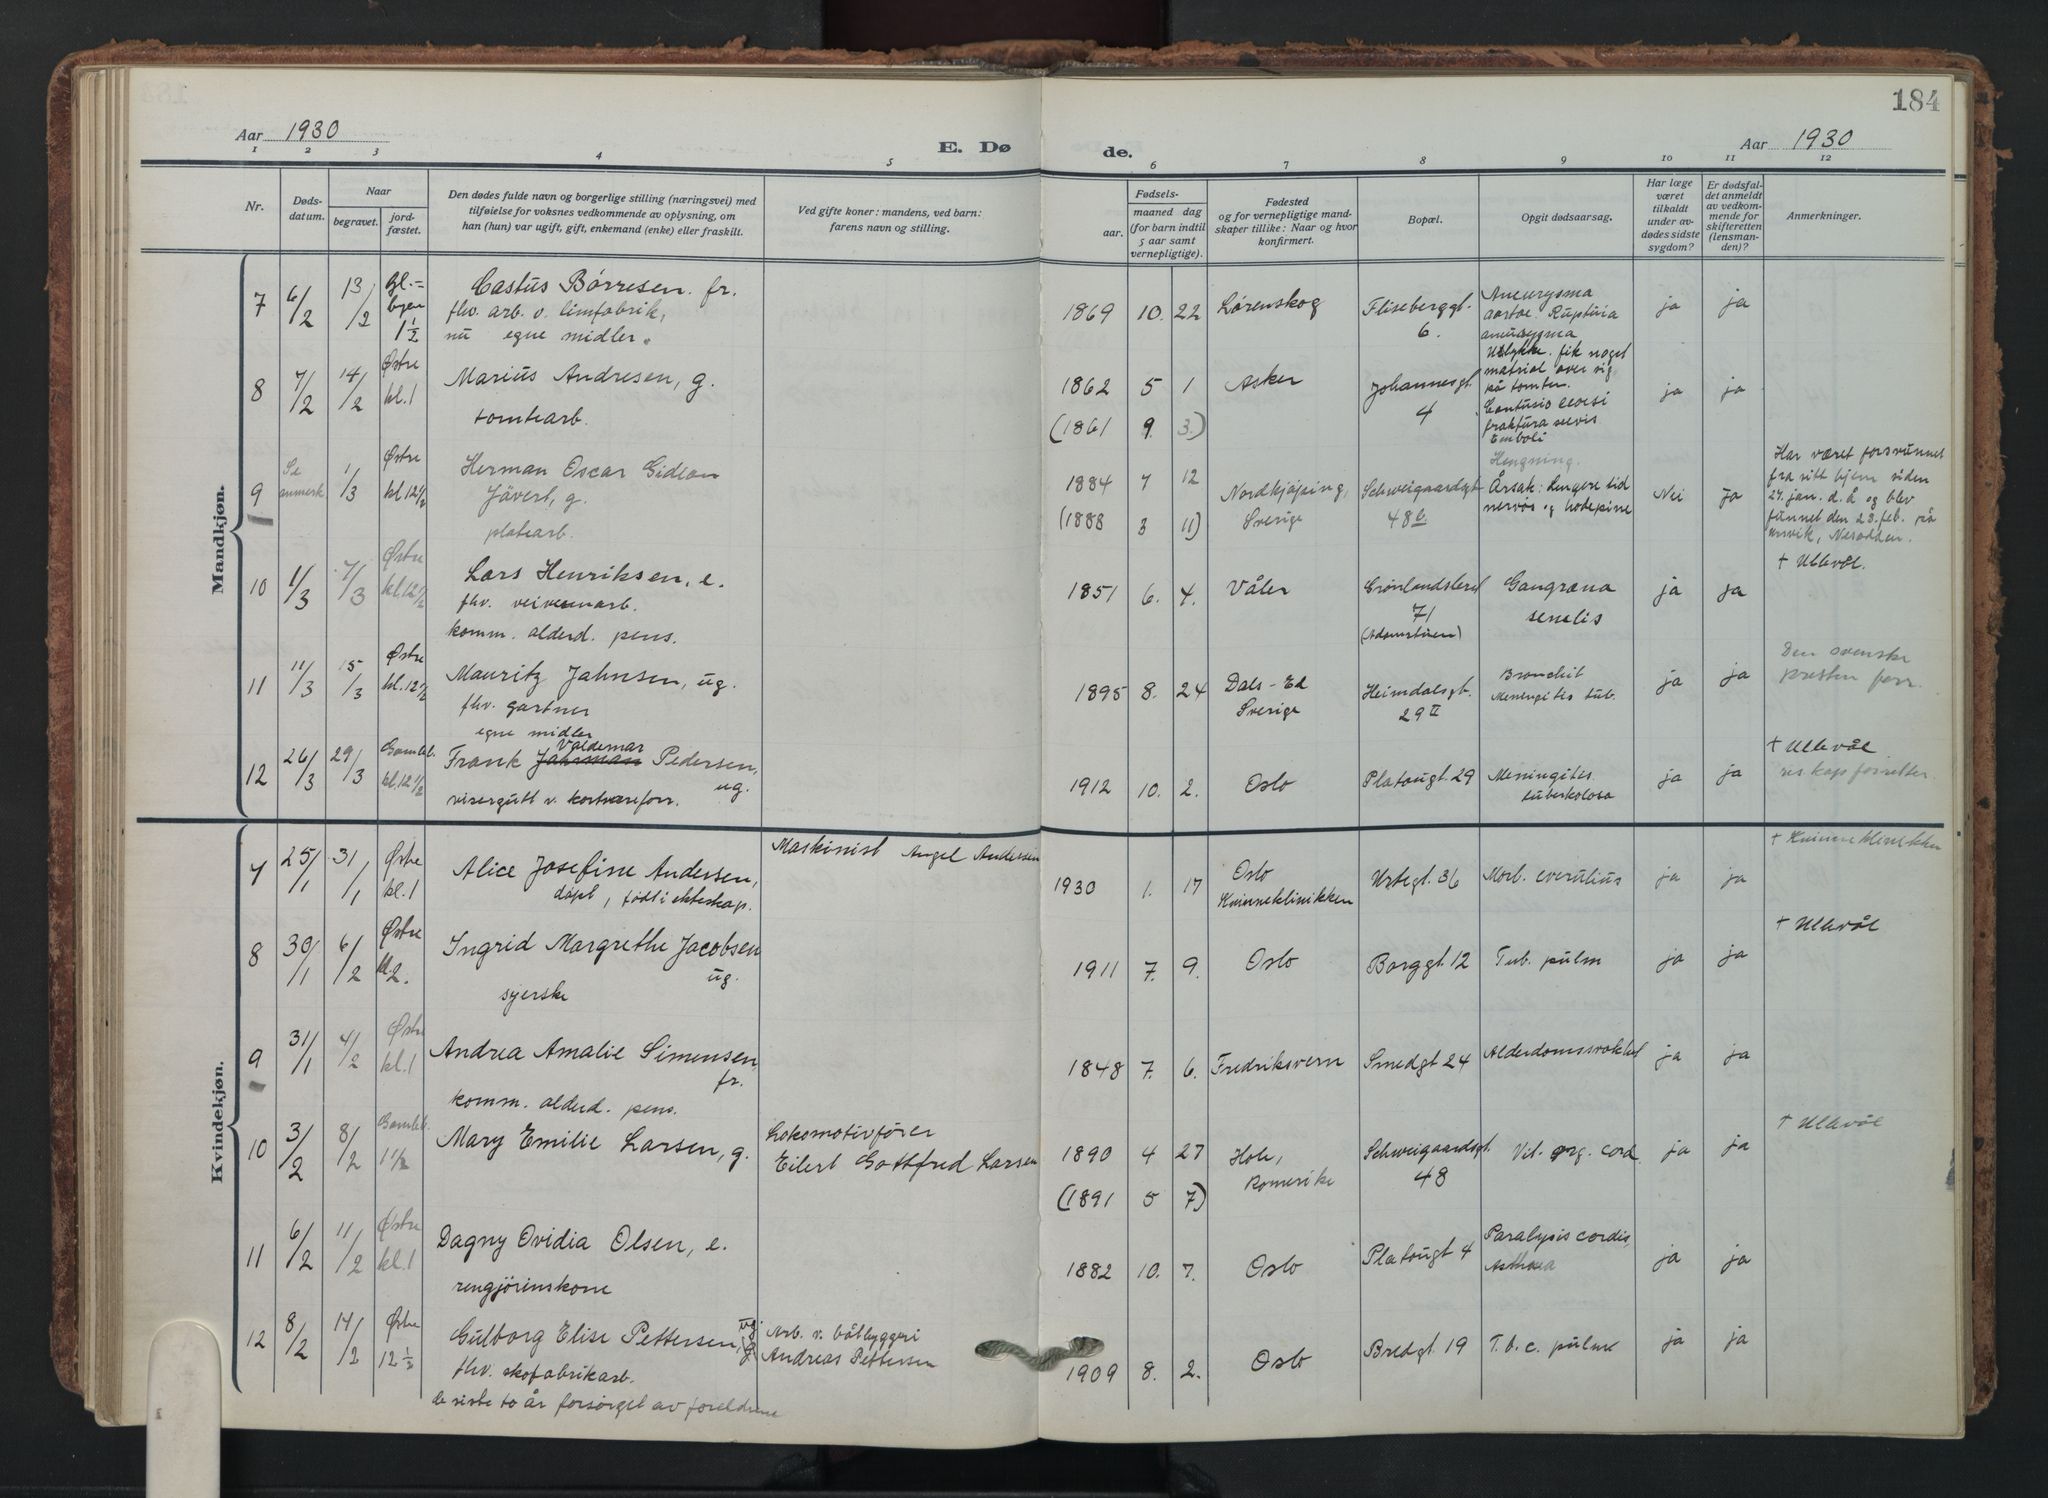 184
Aar 1930
E. Dø
de.
Aar 1930
1 2 3 4 5 6 7 8 9 10 11 12
Nr.
Døds-
datum.
Naar
begravet.
jord-
fæstet.
Den dødes fulde navn og borgerlige stilling (næringsvei) med
tilføielse for voksnes vedkommende av oplysning, om
han (hun) var ugift, gift, enkemand (enke) eller fraskilt.
Ved gifte koner: mandens, ved barn:
farens navn og stilling.
Fødsels-
aar.
maaned
dag
(for barn indtil
5 aar samt
vernepligtige).
Fødested
og for vernepligtige mand-
skaper tillike: Naar og hvor
konfirmert.
Bopæl.
Opgit dødsaarsag.
Har læge
været
tilkaldt
under av-
dødes sidste
sygdom?
Er dødsfal-
det anmeldt
av vedkom-
mende for
skifteretten
(lensman-
den)?
Anmerkninger.
Mandkjøn.
7 6/2 13/2 Gl.=
byen
1½
Castus Børresen. fr.
fhv. arb. v. limfabrik,
nu egne midler.
1869 10. 22 Lørenskog
Fliseberggt.
6.
Aneurysma
aortae. Ruptura
aneurysma
ja ja
8 7/2 14/2 Østre
kl. 1
Marius Andresen, g.
tomtearb.
1862 5 1 Asker
(1861 9. 3.)
Johannesgt.
4
Ulykke. fik noget
matrial over sig
på tomten.
Contusio
fraktura
Emboli
ja ja
9 Se
anmerk. 1/3 Østre
kl. 12½
Herman Oscar Gideon
Jävert, g.
platearb.
1884 7 12 Nordkjøping,
(1888 3 11) Sverige
Schweigaardsgt.
48 b.
Hengning.
Årsak: Lengere tid
nervøs og hodepine
Nei Ja
Har været forsvunnet
fra sitt hjem siden
27. jan. d. å og blev
funnet den 23. feb. på
Nesodden.
10 1/3 7/3 Østre
kl. 12½
Lars Henriksen, e.
fhv. veivesenarb.
komm. alderd. pens.
1851 6. 4. Våler
Grønlandsleret
71
Gangræna
senelis
ja ja
+ Ullevål.
11 11/3 15/3 Østre
kl. 12½
Mauritz Jahnsen, ug.
fhv. gartner
egne midler
1895 8. 24 Dals-Ed
Sverige
Heimdalsgt.
29 II
Bronchit
Meningitis tub.
ja ja
Den svenske
presten forr.
12 26/3 29/3 Gamleb.
kl. 12½
Valdemar
Frank Jahrman Pedersen,
ug.
visergutt v. kortvareforr.
1912 10. 2. Oslo
Platougt. 29
Meningites
tuberkolosa
ja ja
+ Ullevål
res kap forretter.
Kvindekjøn.
7 25/1 31/1 Østre
kl. 1
Alice Josefine Andersen,
døpt, født i ekteskap.
Maskinist Angel Andersen
1930 1. 17 Oslo
Kvinneklinikken
Urtegt. 36
Morb.
ja ja
+ Kvinneklinikken
8 30/1 6/2 Østre
kl 2.
Ingrid Margrethe Jacobsen
ug.
syerske
1911 7. 9. Oslo
Borggt. 12
Tub. pulm
ja ja
+ Ullevål
9 31/1 4/2 Østre
kl. 1
Andrea Amalie Simensen
fr.
komm. alderd. pens.
1848 7. 6. Fredriksvern
Smedgt 24
Alderdomssvakhet
ja ja
10 3/2 8/2 Gamleb.
11½
Mary Emilie Larsen, g.
Lokomotivfører
Eilert Gottfred Larsen
1890 4 27 Hole,
(1891 5 7) Romerike
Schweigaardsgt.
48
Vit. org. cord.
ja ja
+ Ullevål
11 6/2 11/2 Østre
kl. 1
Dagny Ovidia Olsen, e.
rengjørinskone
1882 10. 7. Oslo
Platougt 4
Paralysis cordis,
Asthma
ja ja
12 8/2 14/2 Østre
12½
Gulborg Elise Pettersen, ug.
fhv. skofabrikarb.
de siste to år forsørget av foreldrene
Arb. v. båtbyggeri
Andreas Pettersen
1909 8. 2. Oslo
Bredgt. 19
T. b. c. pulm
ja ja